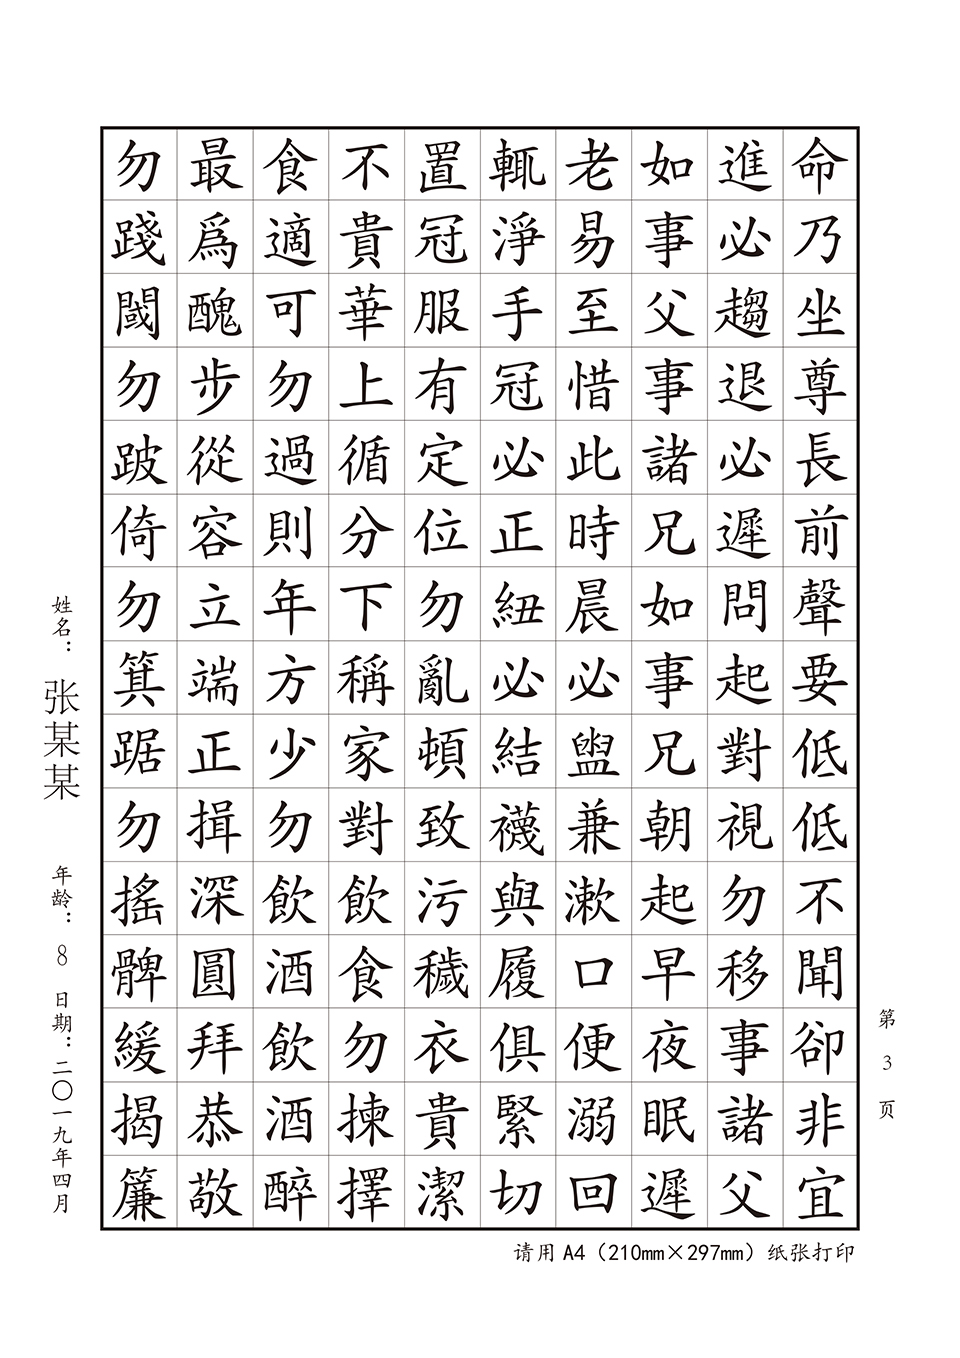 命乃坐尊長前聲要低低不聞卻非宜
進必趨退必遲問起對視勿移事諸父
如事父事諸兄如事兄朝起早夜眠遲
老易至惜此時晨必盥兼漱口便溺回
輒淨手冠必正紐必結襪與履俱緊切
置冠服有定位勿亂頓致污穢衣貴潔
不貴華上循分下稱家對飲食勿揀擇
食適可勿過則年方少勿飲酒飲酒醉
最爲醜步從容立端正揖深圓拜恭敬
勿踐閾勿跛倚勿箕踞勿搖髀緩揭簾
第 3 页
姓名： 张某某 年龄： 8 日期：二〇一九年四月
请用 A4（210mm×297mm）纸张打印